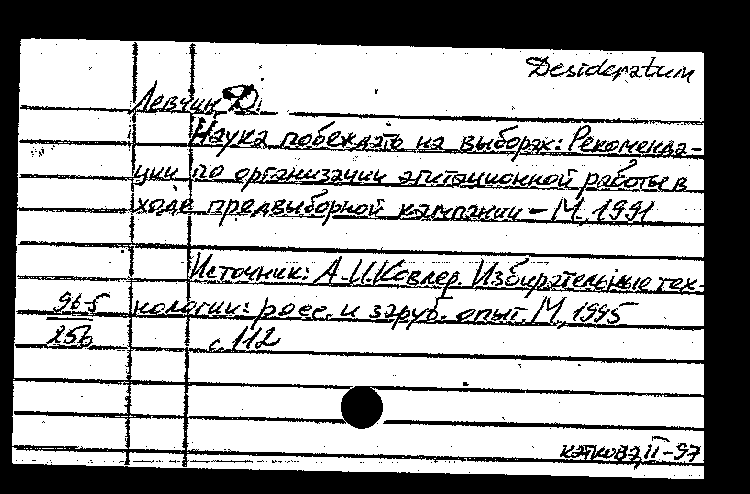 Desideratum
Левчик Д.
Наука побеждать на выборах: Рекоменда-
ции по организации агитационной работы в
ходе предвыборной кампании – М., 1991
Источник: А.И. Ковлер. Избирательные тех-
96-5 нологии: росс. и заруб. опыт. М., 1995
256 с. 112
каткова, II-97